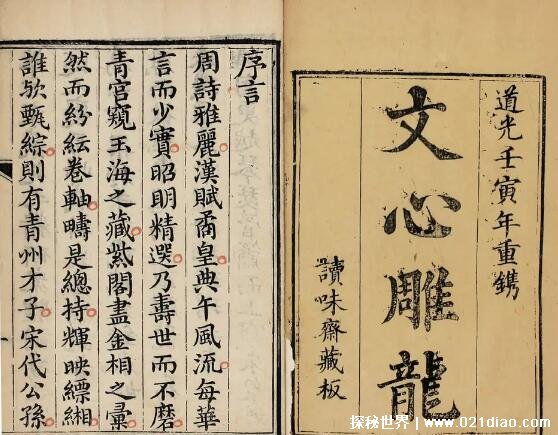 道光壬寅年重鐫
文心雕龍
讀味齋藏板
序言
周詩雅麗漢賦矞皇典午風流每華
言而少實昭明精選乃壽世而不磨
青宮窺玉海之藏紫閣盡金相之彙
然而紛紜卷軸疇是總持輝映縹緗
誰欤甄綜則有青州才子宋代公孫
探秘世界/www.021diao.com